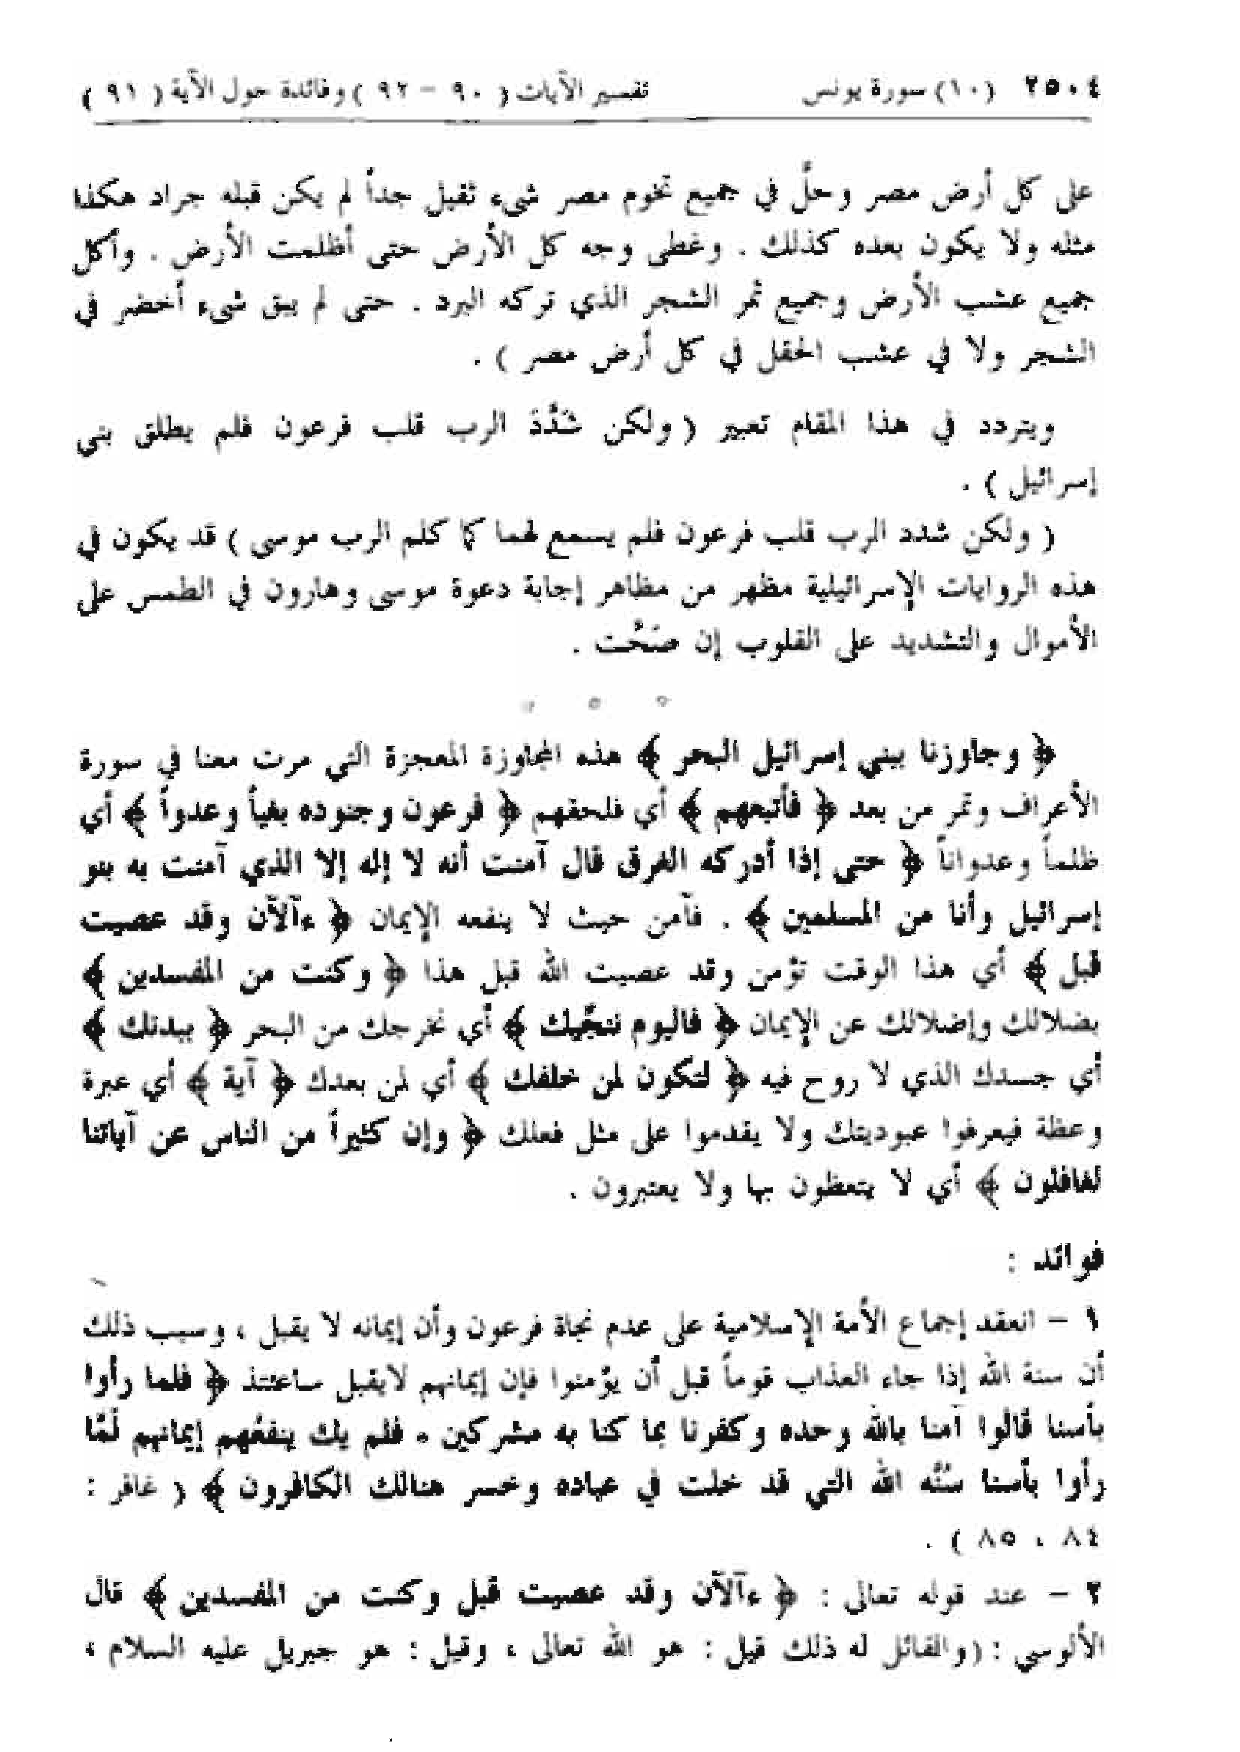 ٢٥٠٤ (١٠) سورة يونس تفسير الآيات ( ٩٠ – ٩٢ ) وفائدة حول الآية ( ٩١ )
على كل أرض مصر وحلَّ في جميع تخوم مصر شيء ثقيل جداً لم يكن قبله جراد هكذا
مثله ولا يكون بعده كذلك . وغطى وجه كل الأرض حتى أظلمت الأرض . وأكل
جميع عشب الأرض وجميع ثمر الشجر الذي تركه البرد . حتى لم يبق شيء أخضر في
الشجر ولا في عشب الحقل في كل أرض مصر ) .
ويتردد في هذا المقام تعبير ( ولكن شَدَّدَ الرب قلب فرعون فلم يطلق بني
إسرائيل ) .
( ولكن شدد الرب قلب فرعون فلم يسمع لهما كما كلم الرب موسى ) قد يكون في
هذه الروايات الإسرائيلية مظهر من مظاهر إجابة دعوة موسى وهارون في الطمس على
الأموال والتشديد على القلوب إن صَحَّت .
﴿ وجاوزنا ببني إسرائيل البحر ﴾ هذه المجاوزة المعجزة التي مرت معنا في سورة
الأعراف وتمر من بعد ﴿ فأتبعهم ﴾ أي فلحقهم ﴿ فرعون وجنوده بغياً وعدواً ﴾ أي
ظلماً وعدواناً ﴿ حتى إذا أدركه الغرق قال آمنت أنه لا إله إلا الذي آمنت به بنو
إسرائيل وأنا من المسلمين ﴾ . فآمن حيث لا ينفعه الإيمان ﴿ ءآلآن وقد عصيت
قبل ﴾ أي هذا الوقت تؤمن وقد عصيت الله قبل هذا ﴿ وكنت من المفسدين ﴾
بضلالك وإضلالك عن الإيمان ﴿ فاليوم ننجِّيك ﴾ أي نخرجك من البحر ﴿ ببدنك ﴾
أي جسدك الذي لا روح فيه ﴿ لتكون لمن خلفك ﴾ أي لمن بعدك ﴿ آية ﴾ أي عبرة
وعظة فيعرفوا عبوديتك ولا يقدموا على مثل فعلك ﴿ وإن كثيراً من الناس عن آياتنا
لغافلون ﴾ أي لا يتعظون بها ولا يعتبرون .
فوائد :
١ – انعقد إجماع الأمة الإسلامية على عدم نجاة فرعون وأن إيمانه لا يقبل ، وسبب ذلك
أن سنة الله إذا جاء العذاب قوماً قبل أن يؤمنوا فإن إيمانهم لايقبل ساعتئذ ﴿ فلما رأوا
بأسنا قالوا آمنا بالله وحده وكفرنا بما كنا به مشركين ٭ فلم يك ينفعُهم إيمانهم لَمَّا
رأوا بأسنا سُنَّه الله التي قد خلت في عباده وخسر هنالك الكافرون ﴾ ( غافر :
٨٤ ، ٨٥ ) .
٢ – عند قوله تعالى : ﴿ ءآلآن وقد عصيت قبل وكنت من المفسدين ﴾ قال
الألوسي : ( والقائل له ذلك قيل : هو الله تعالى ، وقيل : هو جبريل عليه السلام ،